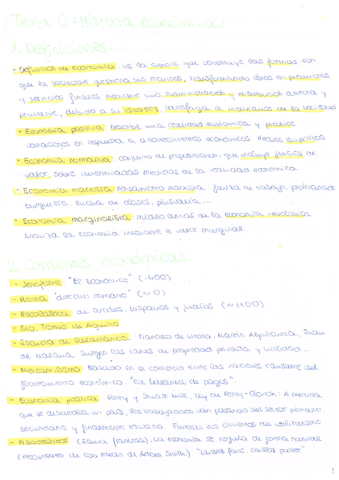 Tema 0: Historia económica:
1. Definiciones:
- Definición de economía: es la ciencia que construye las formas con
que la sociedad gestiona sus recursos, transformando estos en productos
y servicios finales mediante una administración y distribución
y debido a su individuos de la sociedad
- Economía positiva: Describe una realidad económica y predice
variaciones en respuesta a acontecimientos económicos. Hechos empíricos
- Economía normativa: conjunto de proposiciones que incluye juicios de
valor, sobre determinadas medidas de la realidad económica.
- Economía marxista: Pensamiento marxista, fuerza de trabajo, proletariado
burguesía, lucha de clases, plusvalía...
- Economía marginalista: modelo de la economía neoclásica
la economía mediante el valor marginal.
2. Corrientes económicas:
- Jenofonte: "El económico" (-400)
- Roma "derecho romano" (~0)
- Escolástica: de árabes, hispanos y judíos
- Sto. Tomás de Aquino
- Escuela de Salamanca: Francisco de Vitoria, Martín Azpilicueta, Juan
de Mariana. Surgen las ideas de propiedad privada y utilidad...
- Mercantilismo: Basado en el comercio entre las naciones causante del
económico "La balanza de pagos".
- Economía política: Petty y Stuart Mill, ley de Petty-Clark: A medida
que se desarrolla un país, los trabajadores van pasando del sector primario
secundario y finalmente terciario. del utilitarismo
- Fisiócratas: (Escuela francesa). La economía se regula de forma natural
de Adam Smith) "Laissez faire, laissez passer"
1